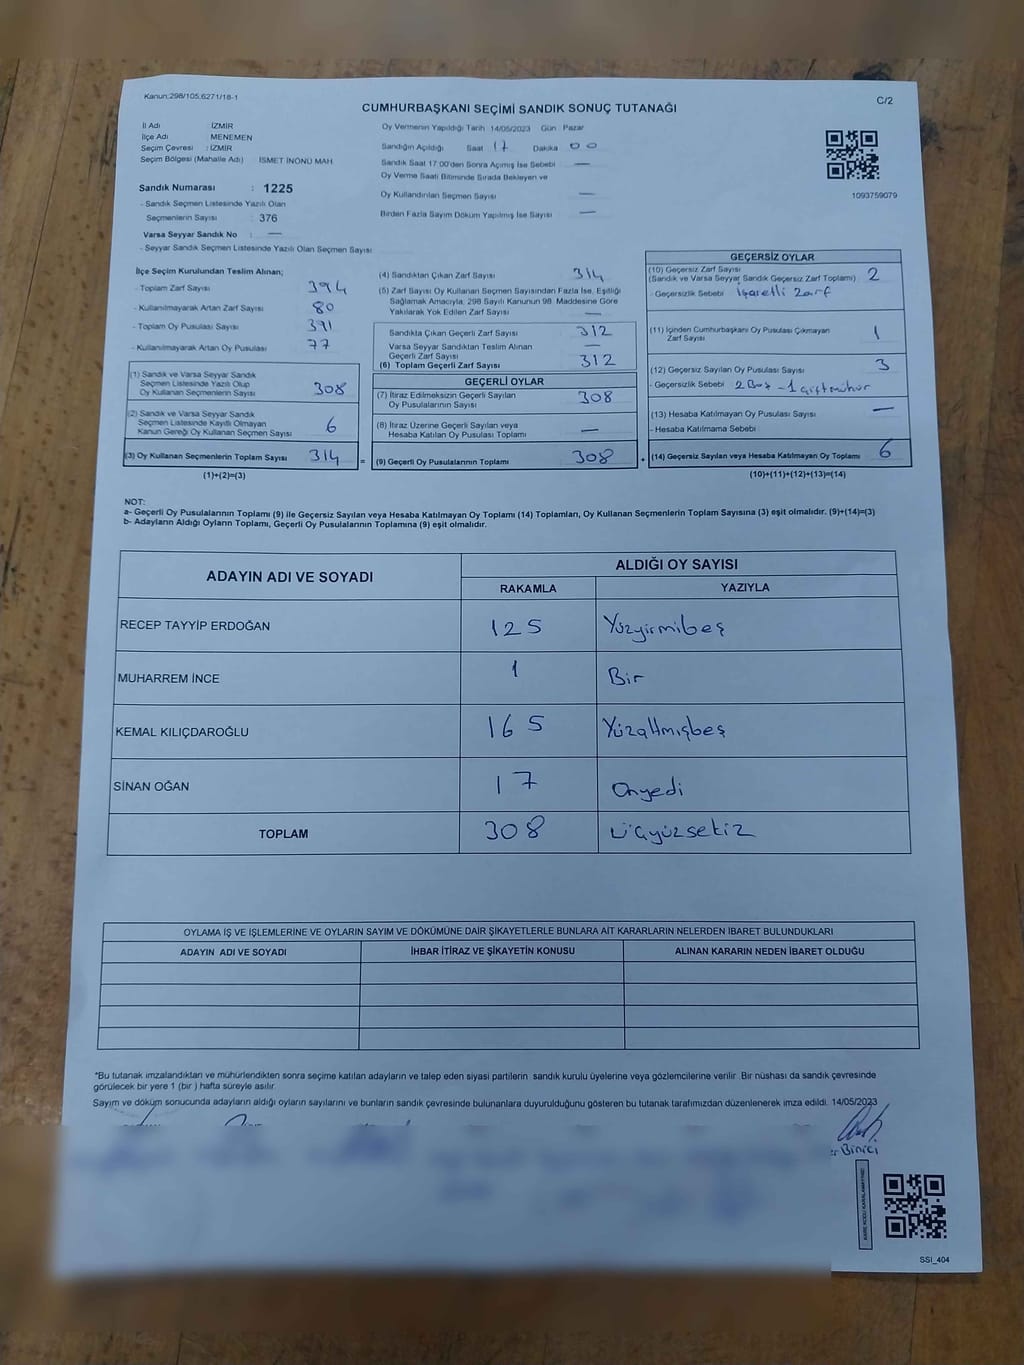 Kanun;298/105;6271/18-1
C/2
CUMHURBAŞKANI SEÇİMİ SANDIK SONUÇ TUTANAĞI
İl Adı : İZMİR
İlçe Adı : MENEMEN
Seçim Çevresi : İZMİR
Seçim Bölgesi (Mahalle Adı) : İSMET İNÖNÜ MAH
Sandık Numarası : 1225
- Sandık Seçmen Listesinde Yazılı Olan
Seçmenlerin Sayısı : 376
Varsa Seyyar Sandık No : —
- Seyyar Sandık Seçmen Listesinde Yazılı Olan Seçmen Sayısı
Oy Vermenin Yapıldığı Tarih 14/05/2023 Gün : Pazar
Sandığın Açıldığı Saat 17 Dakika 00
Sandık Saat 17:00'den Sonra Açımış İse Sebebi —
Oy Verme Saati Bitiminde Sırada Bekleyen ve
Oy Kullandırılan Seçmen Sayısı —
Birden Fazla Sayım Döküm Yapılmış İse Sayısı —
1093759079
İlçe Seçim Kurulundan Teslim Alınan;
- Toplam Zarf Sayısı 394
- Kullanılmayarak Artan Zarf Sayısı 80
- Toplam Oy Pusulası Sayısı 391
- Kullanılmayarak Artan Oy Pusulası 77
(1) Sandık ve Varsa Seyyar Sandık
Seçmen Listesinde Yazılı Olup
Oy Kullanan Seçmenlerin Sayısı 308
(2) Sandık ve Varsa Seyyar Sandık
Seçmen Listesinde Kayıtlı Olmayan
Kanun Gereği Oy Kullanan Seçmen Sayısı 6
(3) Oy Kullanan Seçmenlerin Toplam Sayısı 314 =
(1)+(2)=(3)
(4) Sandıktan Çıkan Zarf Sayısı 314
(5) Zarf Sayısı Oy Kullanan Seçmen Sayısından Fazla İse, Eşitliği
Sağlamak Amacıyla, 298 Sayılı Kanunun 98. Maddesine Göre
Yakılarak Yok Edilen Zarf Sayısı —
Sandıkta Çıkan Geçerli Zarf Sayısı 312
Varsa Seyyar Sandıktan Teslim Alınan
Geçerli Zarf Sayısı —
(6) Toplam Geçerli Zarf Sayısı 312
GEÇERLİ OYLAR
(7) İtiraz Edilmeksizin Geçerli Sayılan
Oy Pusulalarının Sayısı 308
(8) İtiraz Üzerine Geçerli Sayılan veya
Hesaba Katılan Oy Pusulası Toplamı —
(9) Geçerli Oy Pusulalarının Toplamı 308 +
GEÇERSİZ OYLAR
(10) Geçersiz Zarf Sayısı
(Sandık ve Varsa Seyyar Sandık Geçersiz Zarf Toplamı) 2
- Geçersizlik Sebebi İşaretli zarf
(11) İçinden Cumhurbaşkanı Oy Pusulası Çıkmayan
Zarf Sayısı 1
(12) Geçersiz Sayılan Oy Pusulası Sayısı 3
- Geçersizlik Sebebi 2 Boş - 1 çift mühür
(13) Hesaba Katılmayan Oy Pusulası Sayısı —
- Hesaba Katılmama Sebebi
(14) Geçersiz Sayılan veya Hesaba Katılmayan Oy Toplamı 6
(10)+(11)+(12)+(13)=(14)
NOT:
a- Geçerli Oy Pusulalarının Toplamı (9) ile Geçersiz Sayılan veya Hesaba Katılmayan Oy Toplamı (14) Toplamları, Oy Kullanan Seçmenlerin Toplam Sayısına (3) eşit olmalıdır. (9)+(14)=(3)
b- Adayların Aldığı Oyların Toplamı, Geçerli Oy Pusulalarının Toplamına (9) eşit olmalıdır.
ADAYIN ADI VE SOYADI ALDIĞI OY SAYISI
RAKAMLA YAZIYLA
RECEP TAYYİP ERDOĞAN 125 Yüzyirmibeş
MUHARREM İNCE 1 Bir
KEMAL KILIÇDAROĞLU 165 Yüzaltmışbeş
SİNAN OĞAN 17 Onyedi
TOPLAM 308 Üçyüzsekiz
OYLAMA İŞ VE İŞLEMLERİNE VE OYLARIN SAYIM VE DÖKÜMÜNE DAİR ŞİKAYETLERLE BUNLARA AİT KARARLARIN NELERDEN İBARET BULUNDUKLARI
ADAYIN ADI VE SOYADI İHBAR İTİRAZ VE ŞİKAYETİN KONUSU ALINAN KARARIN NEDEN İBARET OLDUĞU
*Bu tutanak imzalandıktan ve mühürlendikten sonra seçime katılan adayların ve talep eden siyasi partilerin sandık kurulu üyelerine veya gözlemcilerine verilir. Bir nüshası da sandık çevresinde
görülecek bir yere 1 (bir ) hafta süreyle asılır.
Sayım ve döküm sonucunda adayların aldığı oyların sayılarını ve bunların sandık çevresinde bulunanlara duyurulduğunu gösteren bu tutanak tarafımızdan düzenlenerek imza edildi. 14/05/2023
Binici
KARE KODU KARALAMAYINIZ!
SSİ_404